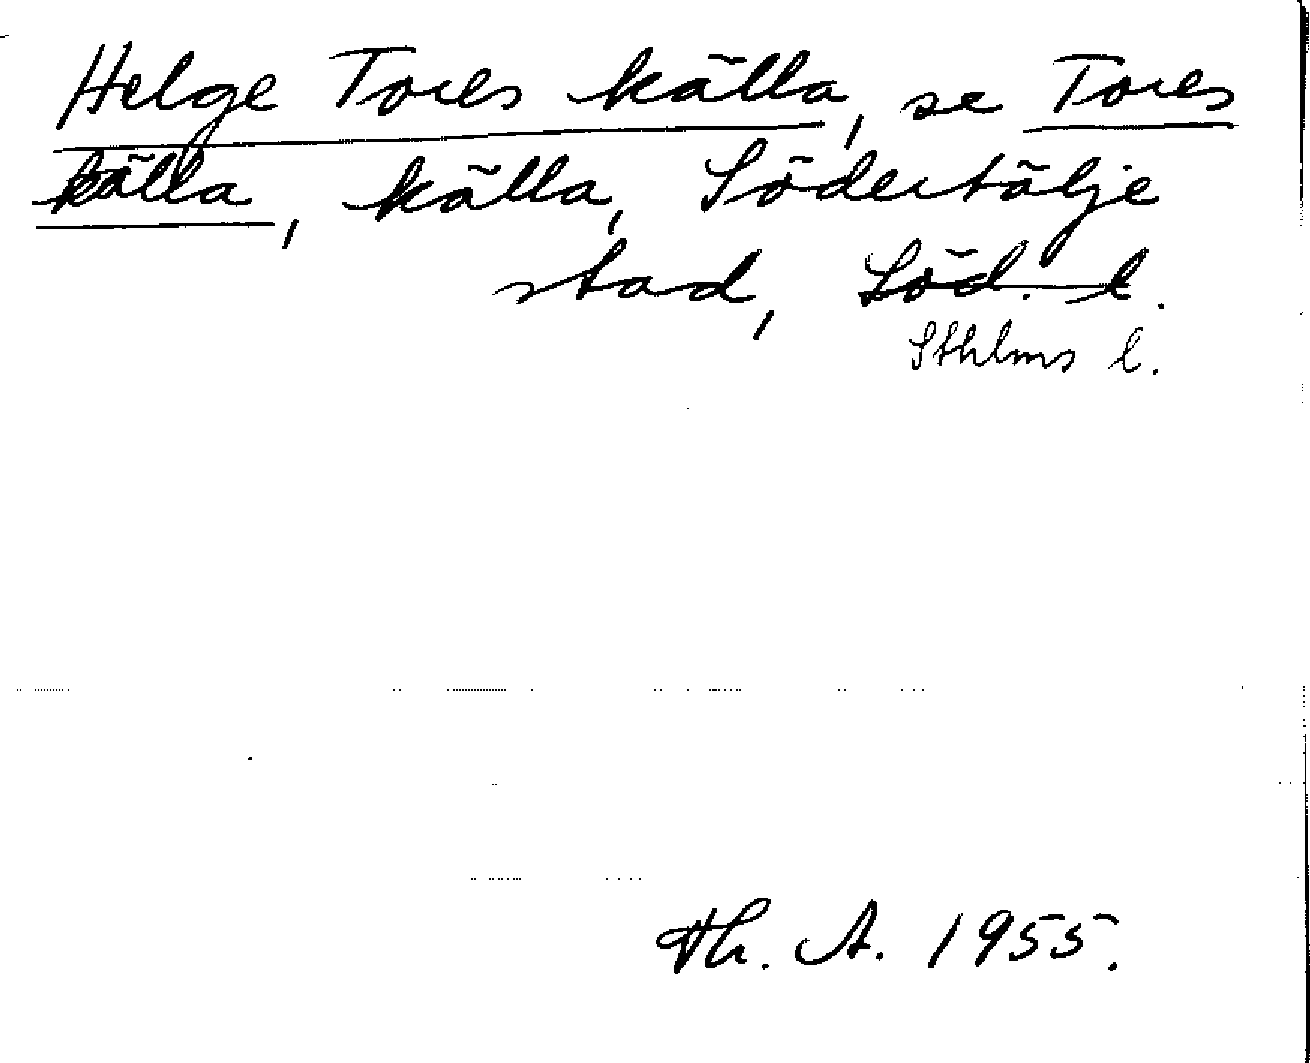 Helge Tores källa, se Tores
källa, källa, Södertälje
stad, Söd. l.
Sthlms l.
Th. A. 1955.